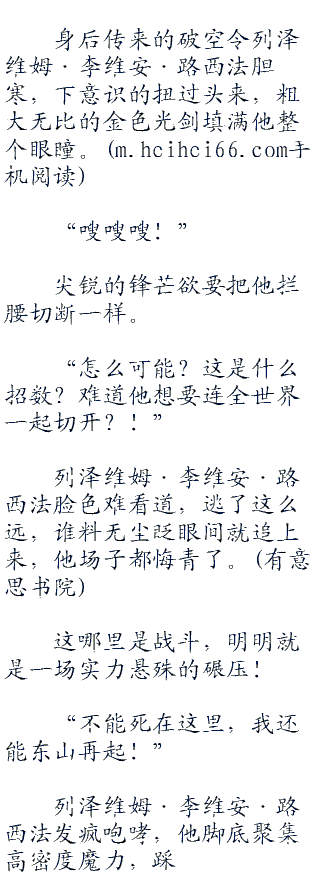 身后传来的破空令列泽
维姆·李维安·路西法胆
寒，下意识的扭过头来，粗
大无比的金色光剑填满他整
个眼瞳。(m.hcihci66.com手
机阅读)
“嗖嗖嗖！”
尖锐的锋芒欲要把他拦
腰切断一样。
“怎么可能？这是什么
招数？难道他想要连全世界
一起切开？！”
列泽维姆·李维安·路
西法脸色难看道，逃了这么
远，谁料无尘眨眼间就追上
来，他场子都悔青了。(有意
思书院)
这哪里是战斗，明明就
是一场实力悬殊的碾压！
“不能死在这里，我还
能东山再起！”
列泽维姆·李维安·路
西法发疯咆哮，他脚底聚集
高密度魔力，踩